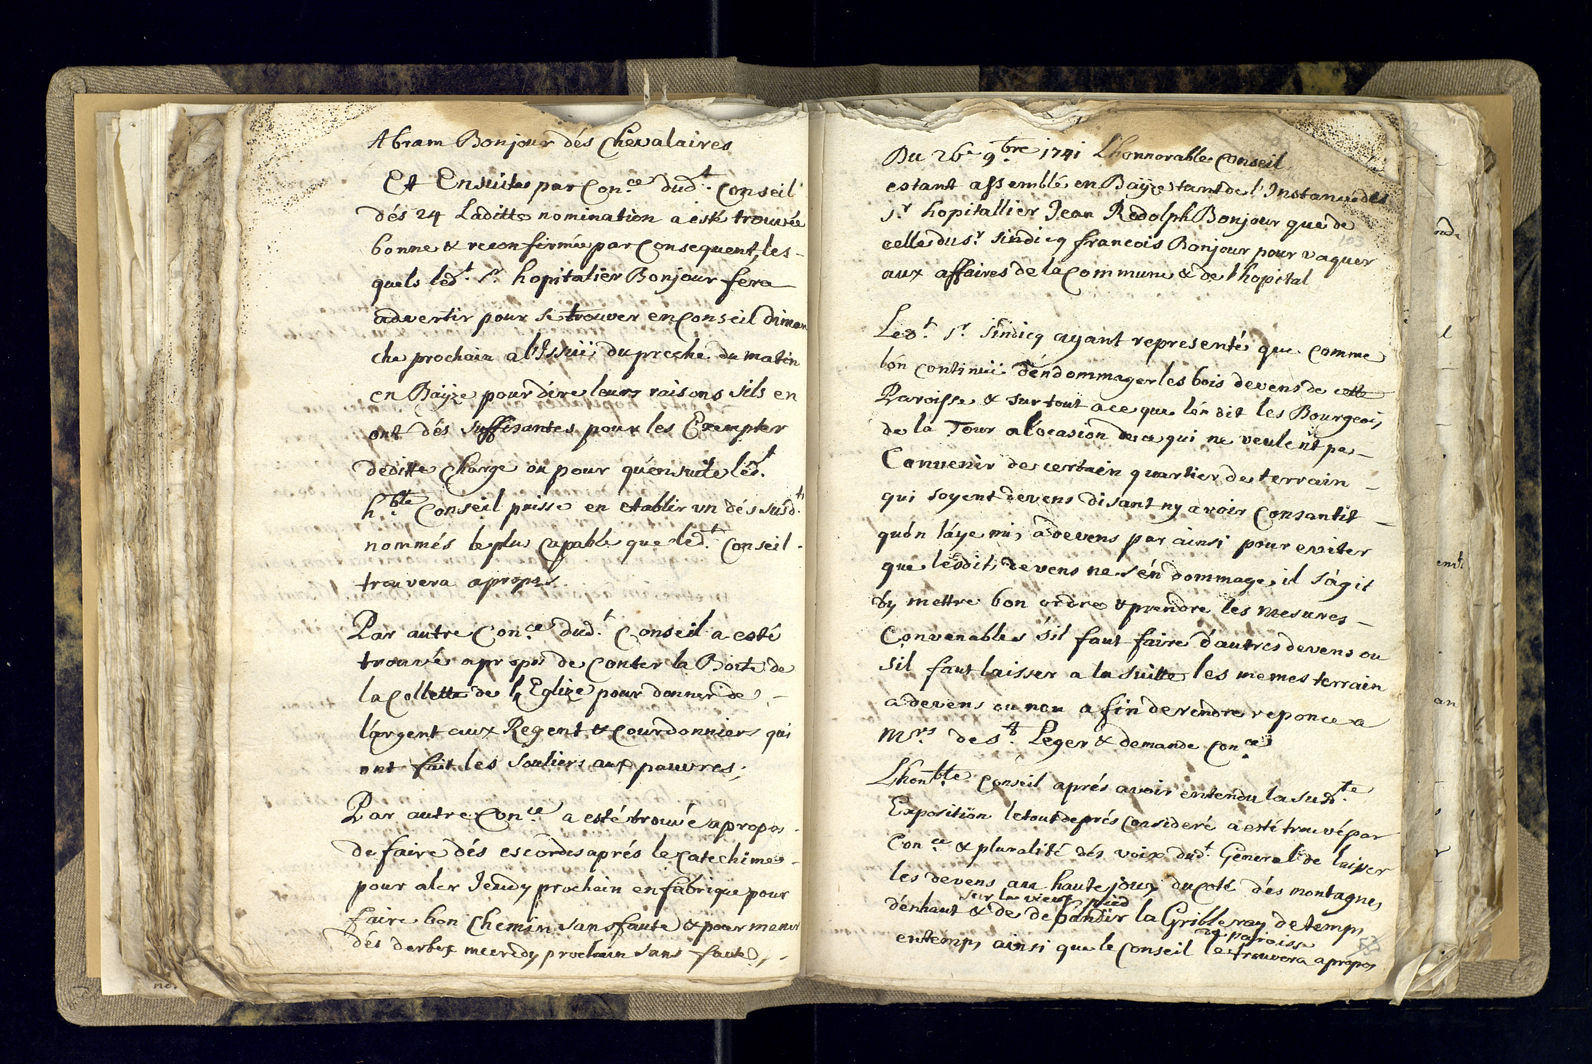 Abram Bonjour dés Chevalaires
Et Ensuite par Con.ce dud.t Conseil
dés 24 Laditte nomination a esté trouvée
bonne & reconfirmée par Consequent, les-
quels led.t Sr. hopitalier Bonjour fera
advertir pour se trouver en Conseil diman
che prochain a l'Issuë du preche du matin
en Baÿze pour dire leurs raisons sils en
ont dés suffisantes pour les Exempter
deditte Charge ou pour qu'ensuite led.t
h.ble Conseil puisse en etablir un dés susd.ts
nommés le plus Capable que led.t Conseil
trouvera apropos.
Par autre Con.ce dud.t Conseil a esté
trouvé apropos de Conter la Boite de
la Collette de l'Eglize pour donner de
l'argent aux Regent & Courdonniers qui
ont fait les souliers aux pauvres;
Par autre Con.ce a esté trouvé apropos
de faire dés escordes aprés le Catechime
pour aler Jeudy prochain en fabrique pour
faire bon Chemin sans faute & pour mener
dés derbes mecredy prochain sans faute,
Du 26.e 9.bre 1741 L'honnorable Conseil
estant assemblé en Baÿze tant de l'Instance des
sr. hopitallier Jean Rodolph Bonjour que de
celle du sr. sindicq francois Bonjour pour vaquer
aux affaires de la Commune & de l'hopital
103
Led.t sr. sindicq ayant representé que comme
l'on continuë d'éndommager les bois devens de cette
Paroisse & surtout a ce que l'ón dit les Bourgeois
de la Tour a l'ocasion de ce qui ne veulent pa-
Convenir de certain quartier de terrain
qui soyent devens disant ny avoir Consantit
qu'ón l'áye mis a devens par ainsi pour eviter
que lésdits devens ne s'én dommage, il s'agit
d'y mettre bon ordre & prendre les mesures
Convenables s'il faut faire d'autres devens ou
s'il faut laisser a la suitte les memes terrain
a devens ou non a fin de rendre reponce a
Mrs. de St. Leger & demande Con.ce
L'hon.ble Conseil aprés avoir entendu la sud.te
Exposition le tout de prés Consideré a esté trouvé par
Con.ce & pluralité dés voix dud.t General de laisser
les devens aux hautes joux du coté dés montagnes
sur les vieux pied
d'énhaut & de de pandir la Grilleray de temps
la paroisse
entemps ainsi que le Conseil le trouvera apropos
53